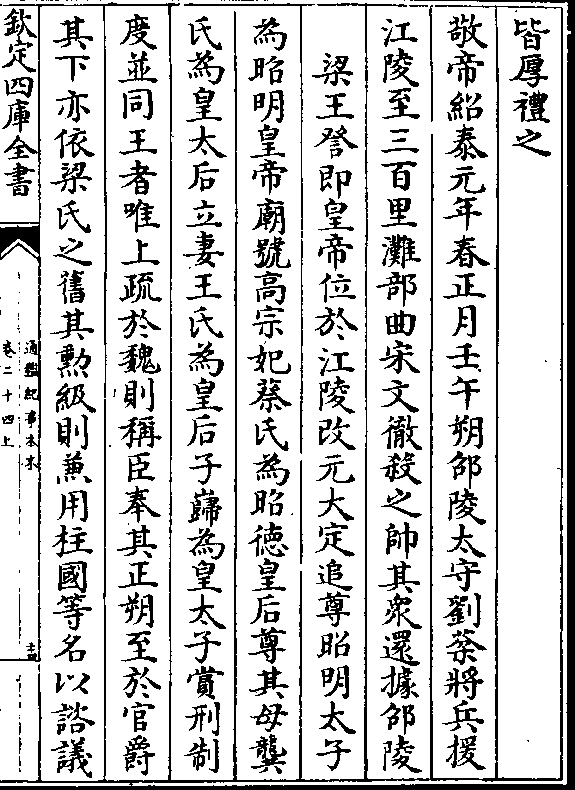 皆厚禮之
敬帝紹泰元年春正月壬午朔邵陵太守劉棻將兵援
江陵至三百里灘部曲宋文徹殺之帥其衆還據邵陵
梁王詧即皇帝位於江陵改元大定追尊昭明太子
為昭明皇帝廟號高宗妃蔡氏為昭德皇后尊其母龔
氏為皇太后立妻王氏為皇后子巋為皇太子賞刑制
度並同王者唯上疏於魏則稱臣奉其正朔至於官爵
其下亦依梁氏之舊其勲級則兼用柱國等名以諮議
欽定四庫全書
通鑑紀事本末
卷二十四上